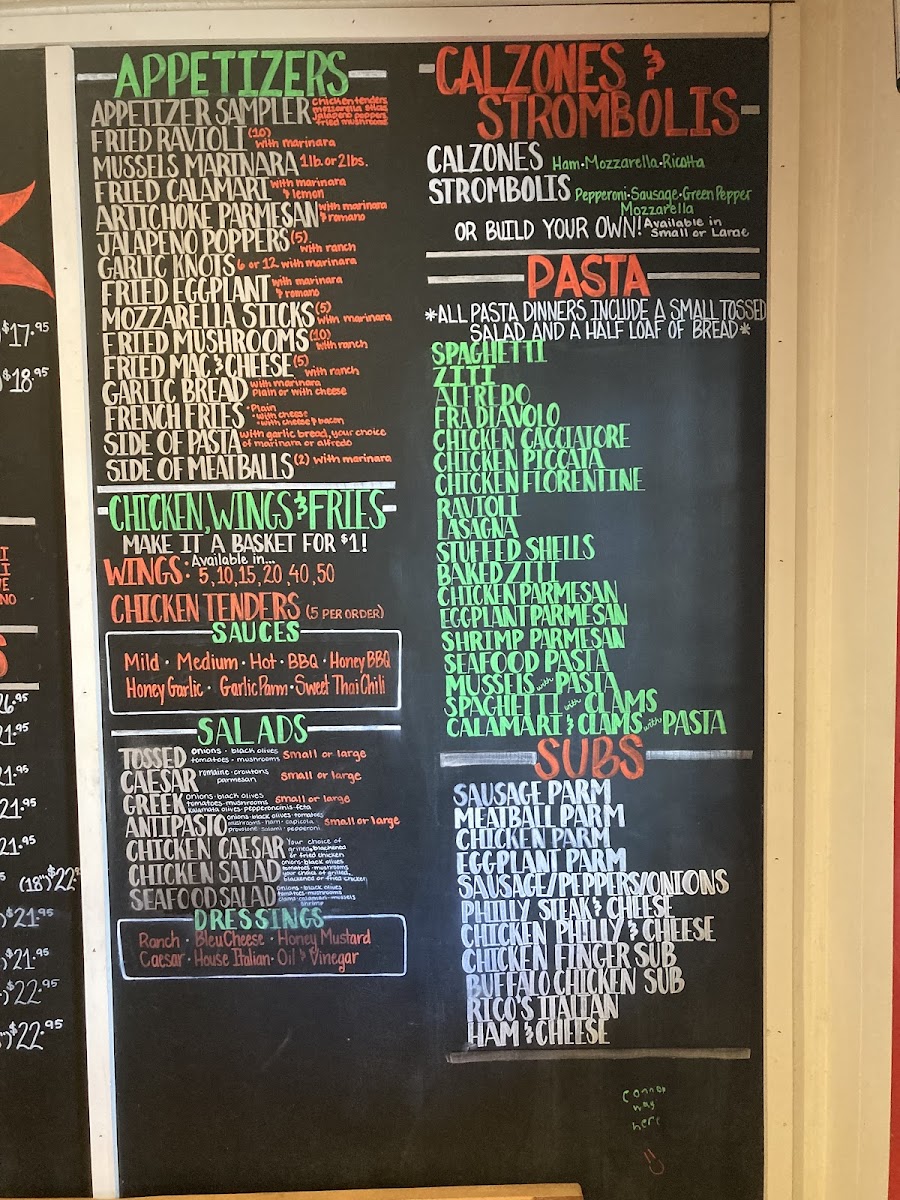 $17.95
$18.95
26.95
21.95
21.95
21.95
21.95
(18") $22
$21.95
$21.95
$22.95
$22.95
APPETIZERS
APPETIZER SAMPLER chicken tenders mozzarella sticks jalapeno peppers fried mushrooms
FRIED RAVIOLI (10) with marinara
MUSSELS MARINARA 1lb. or 2lbs.
FRIED CALAMARI with marinara & lemon
ARTICHOKE PARMESAN with marinara & romano
JALAPENO POPPERS (5) with ranch
GARLIC KNOTS 6 or 12 with marinara
FRIED EGGPLANT with marinara & romano
MOZZARELLA STICKS (5) with marinara
FRIED MUSHROOMS (10) with ranch
FRIED MAC & CHEESE (5) with ranch
GARLIC BREAD with marinara Plain or with cheese
FRENCH FRIES • Plain • with cheese • with cheese & bacon
SIDE OF PASTA with garlic bread, your choice of marinara or alfredo
SIDE OF MEATBALLS (2) with marinara
CHICKEN, WINGS & FRIES
MAKE IT A BASKET FOR $1!
WINGS • Available in... 5, 10, 15, 20, 40, 50
CHICKEN TENDERS (5 PER ORDER)
SAUCES
Mild • Medium • Hot • BBQ • Honey BBQ
Honey Garlic • Garlic Parm • Sweet Thai Chili
SALADS
TOSSED onions • black olives tomatoes • mushrooms small or large
CAESAR romaine • croutons parmesan small or large
GREEK onions • black olives tomatoes • mushrooms kalamata olives • pepperoncinis • feta small or large
ANTIPASTO onions • black olives • tomatoes mushrooms • ham • capicola provolone • salami • pepperoni small or large
CHICKEN CAESAR Your choice of grilled, blackened or fried chicken
CHICKEN SALAD onions • black olives tomatoes • mushrooms your choice of grilled, blackened or fried chicken
SEAFOOD SALAD onions • black olives tomatoes • mushrooms clams • calamari • mussels shrimp
DRESSINGS
Ranch • Bleu Cheese • Honey Mustard
Caesar • House Italian • Oil & Vinegar
CALZONES &
STROMBOLIS
CALZONES Ham • Mozzarella • Ricotta
STROMBOLIS Pepperoni • Sausage • Green Pepper
Mozzarella
OR BUILD YOUR OWN! Available in Small or Large
PASTA
*ALL PASTA DINNERS INCLUDE A SMALL TOSSED
SALAD AND A HALF LOAF OF BREAD*
SPAGHETTI
ZITI
ALFREDO
FRA DIAVOLO
CHICKEN CACCIATORE
CHICKEN PICCATA
CHICKEN FLORENTINE
RAVIOLI
LASAGNA
STUFFED SHELLS
BAKED ZITI
CHICKEN PARMESAN
EGGPLANT PARMESAN
SHRIMP PARMESAN
SEAFOOD PASTA
MUSSELS with PASTA
SPAGHETTI with CLAMS
CALAMARI & CLAMS with PASTA
SUBS
SAUSAGE PARM
MEATBALL PARM
CHICKEN PARM
EGGPLANT PARM
SAUSAGE/PEPPERS/ONIONS
PHILLY STEAK & CHEESE
CHICKEN PHILLY & CHEESE
CHICKEN FINGER SUB
BUFFALO CHICKEN SUB
RICO'S ITALIAN
HAM & CHEESE
Connor
was
here